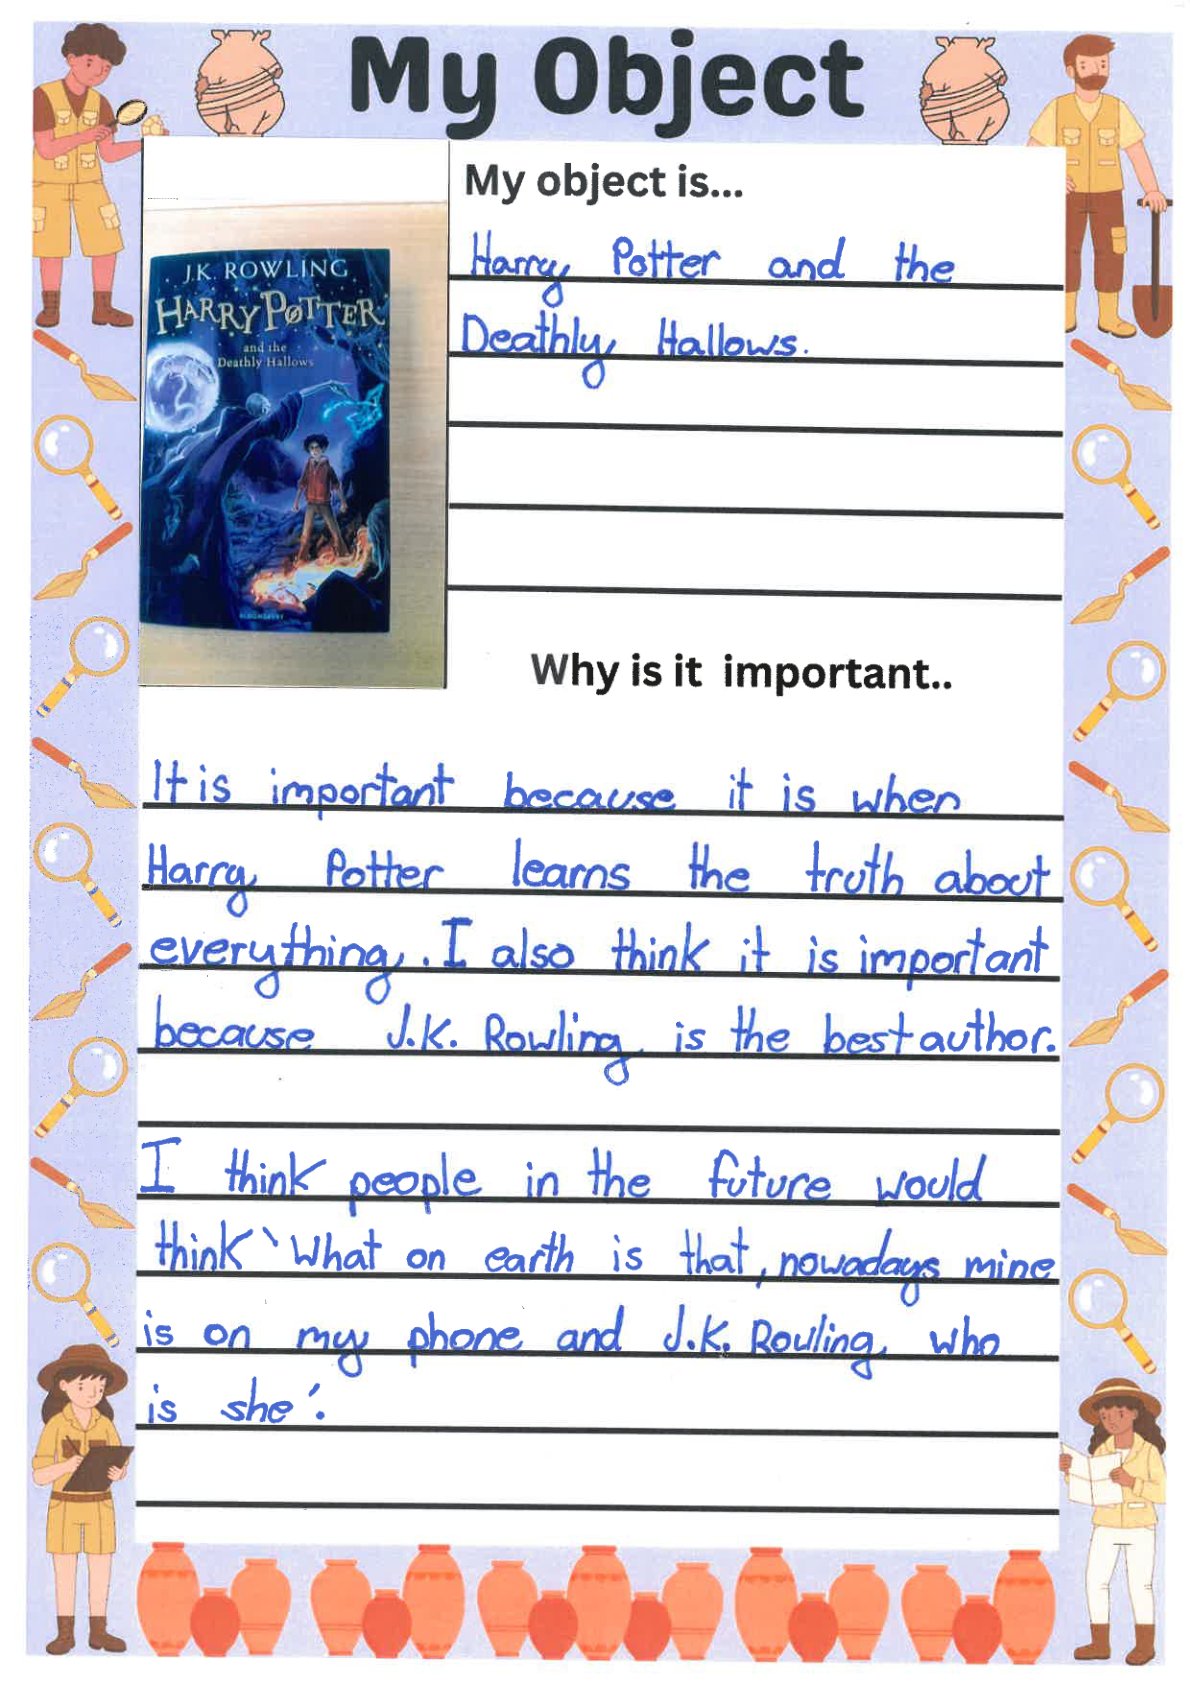 My Object
J.K. ROWLING
HARRY POTTER
and the
Deathly Hallows
BLOOMSBURY
My object is...
Harry Potter and the
Deathly Hallows.
Why is it important..
It is important because it is when
Harry Potter learns the truth about
everything. I also think it is important
because J.K. Rowling is the best author.
I think people in the future would
think 'What on earth is that, nowadays mine
is on my phone and J.K. Rowling, who
is she'.